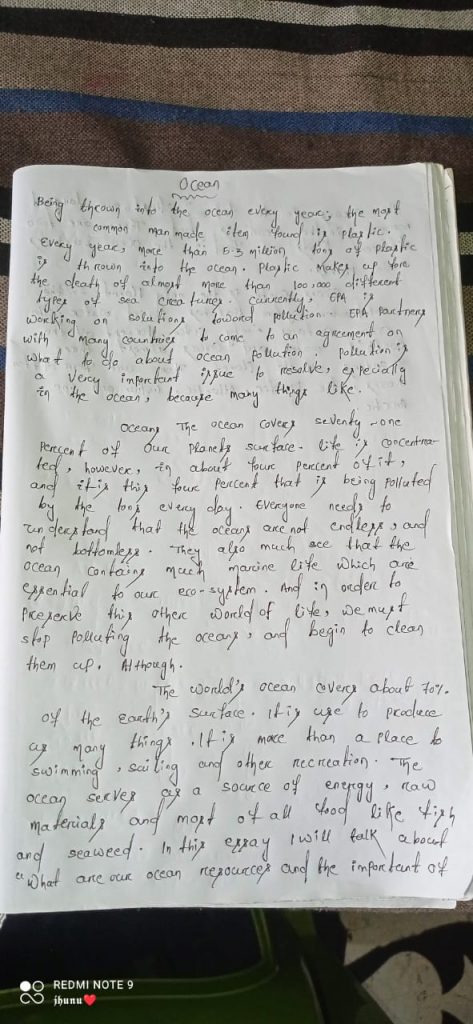 Ocean
Being thrown into the ocean every year, the most
common man made item found is plastic.
Every year, more than 5.3 million tons of plastic
is thrown into the ocean. Plastic makes up fore
the death of almost more than 100,000 different
types of sea creatures. Currently, EPA is
working on solutions toword pollution. EPA partners
with many countries to come to an agreement on
what to do about ocean pollution. pollution is
a very important issue to resolve, especially
in the ocean, because many things like.
Oceans The ocean covers seventy-one
percent of our planets surface. life is concentra-
ted, however, in about four percent of it,
and it is this four percent that is being polluted
by the tons every day. Everyone needs to
understand that the oceans are not endless, and
not bottomless. They also much see that the
ocean contains much marine life which are
essential to our eco-system. And in order to
preserve this other world of life, we must
stop polluting the oceans, and begin to clean
them up. Although.
The world's ocean covers about 70%
of the earth's surface. It is use to produce
us many things. It is more than a place to
swimming, sailing and other recreation. The
ocean serves as a source of energy, raw
materials and most of all food like fish
and seaweed. In this essay I will talk about
"What are our ocean resources and the important of
REDMI NOTE 9
jhunu❤